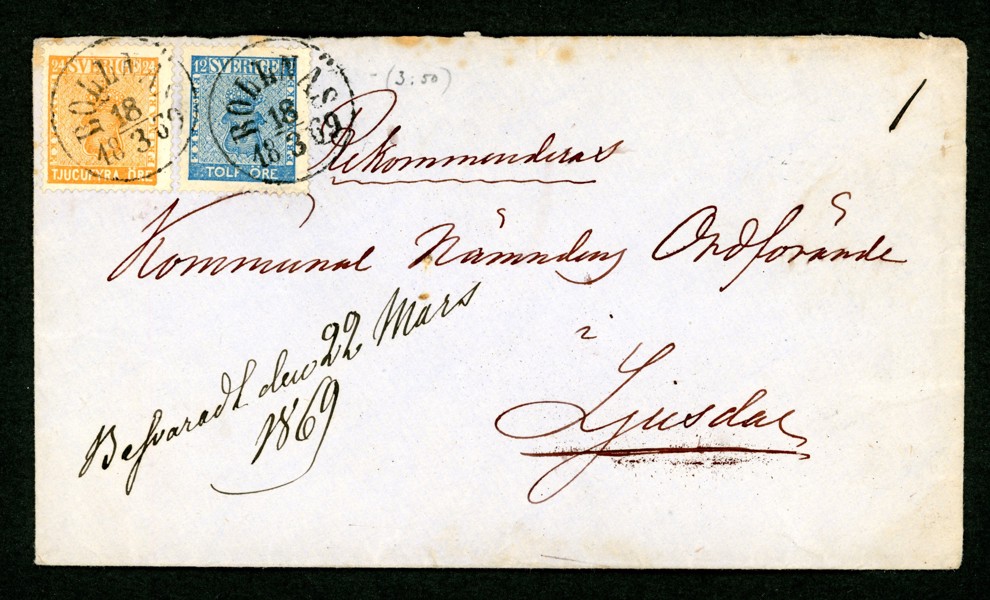 24 SVERIGE 24
TJUGUFYRA ÖRE
12 SVERIGE
TOLF ÖRE
BOLLNÄS
18
18 3 69
BOLLNÄS
18
18 3 69
(3:50)
1
Rekommenderas
Kommunal Nämndens Ordförande
i
Ljusdal
Besvaradt den 22 Mars
1869